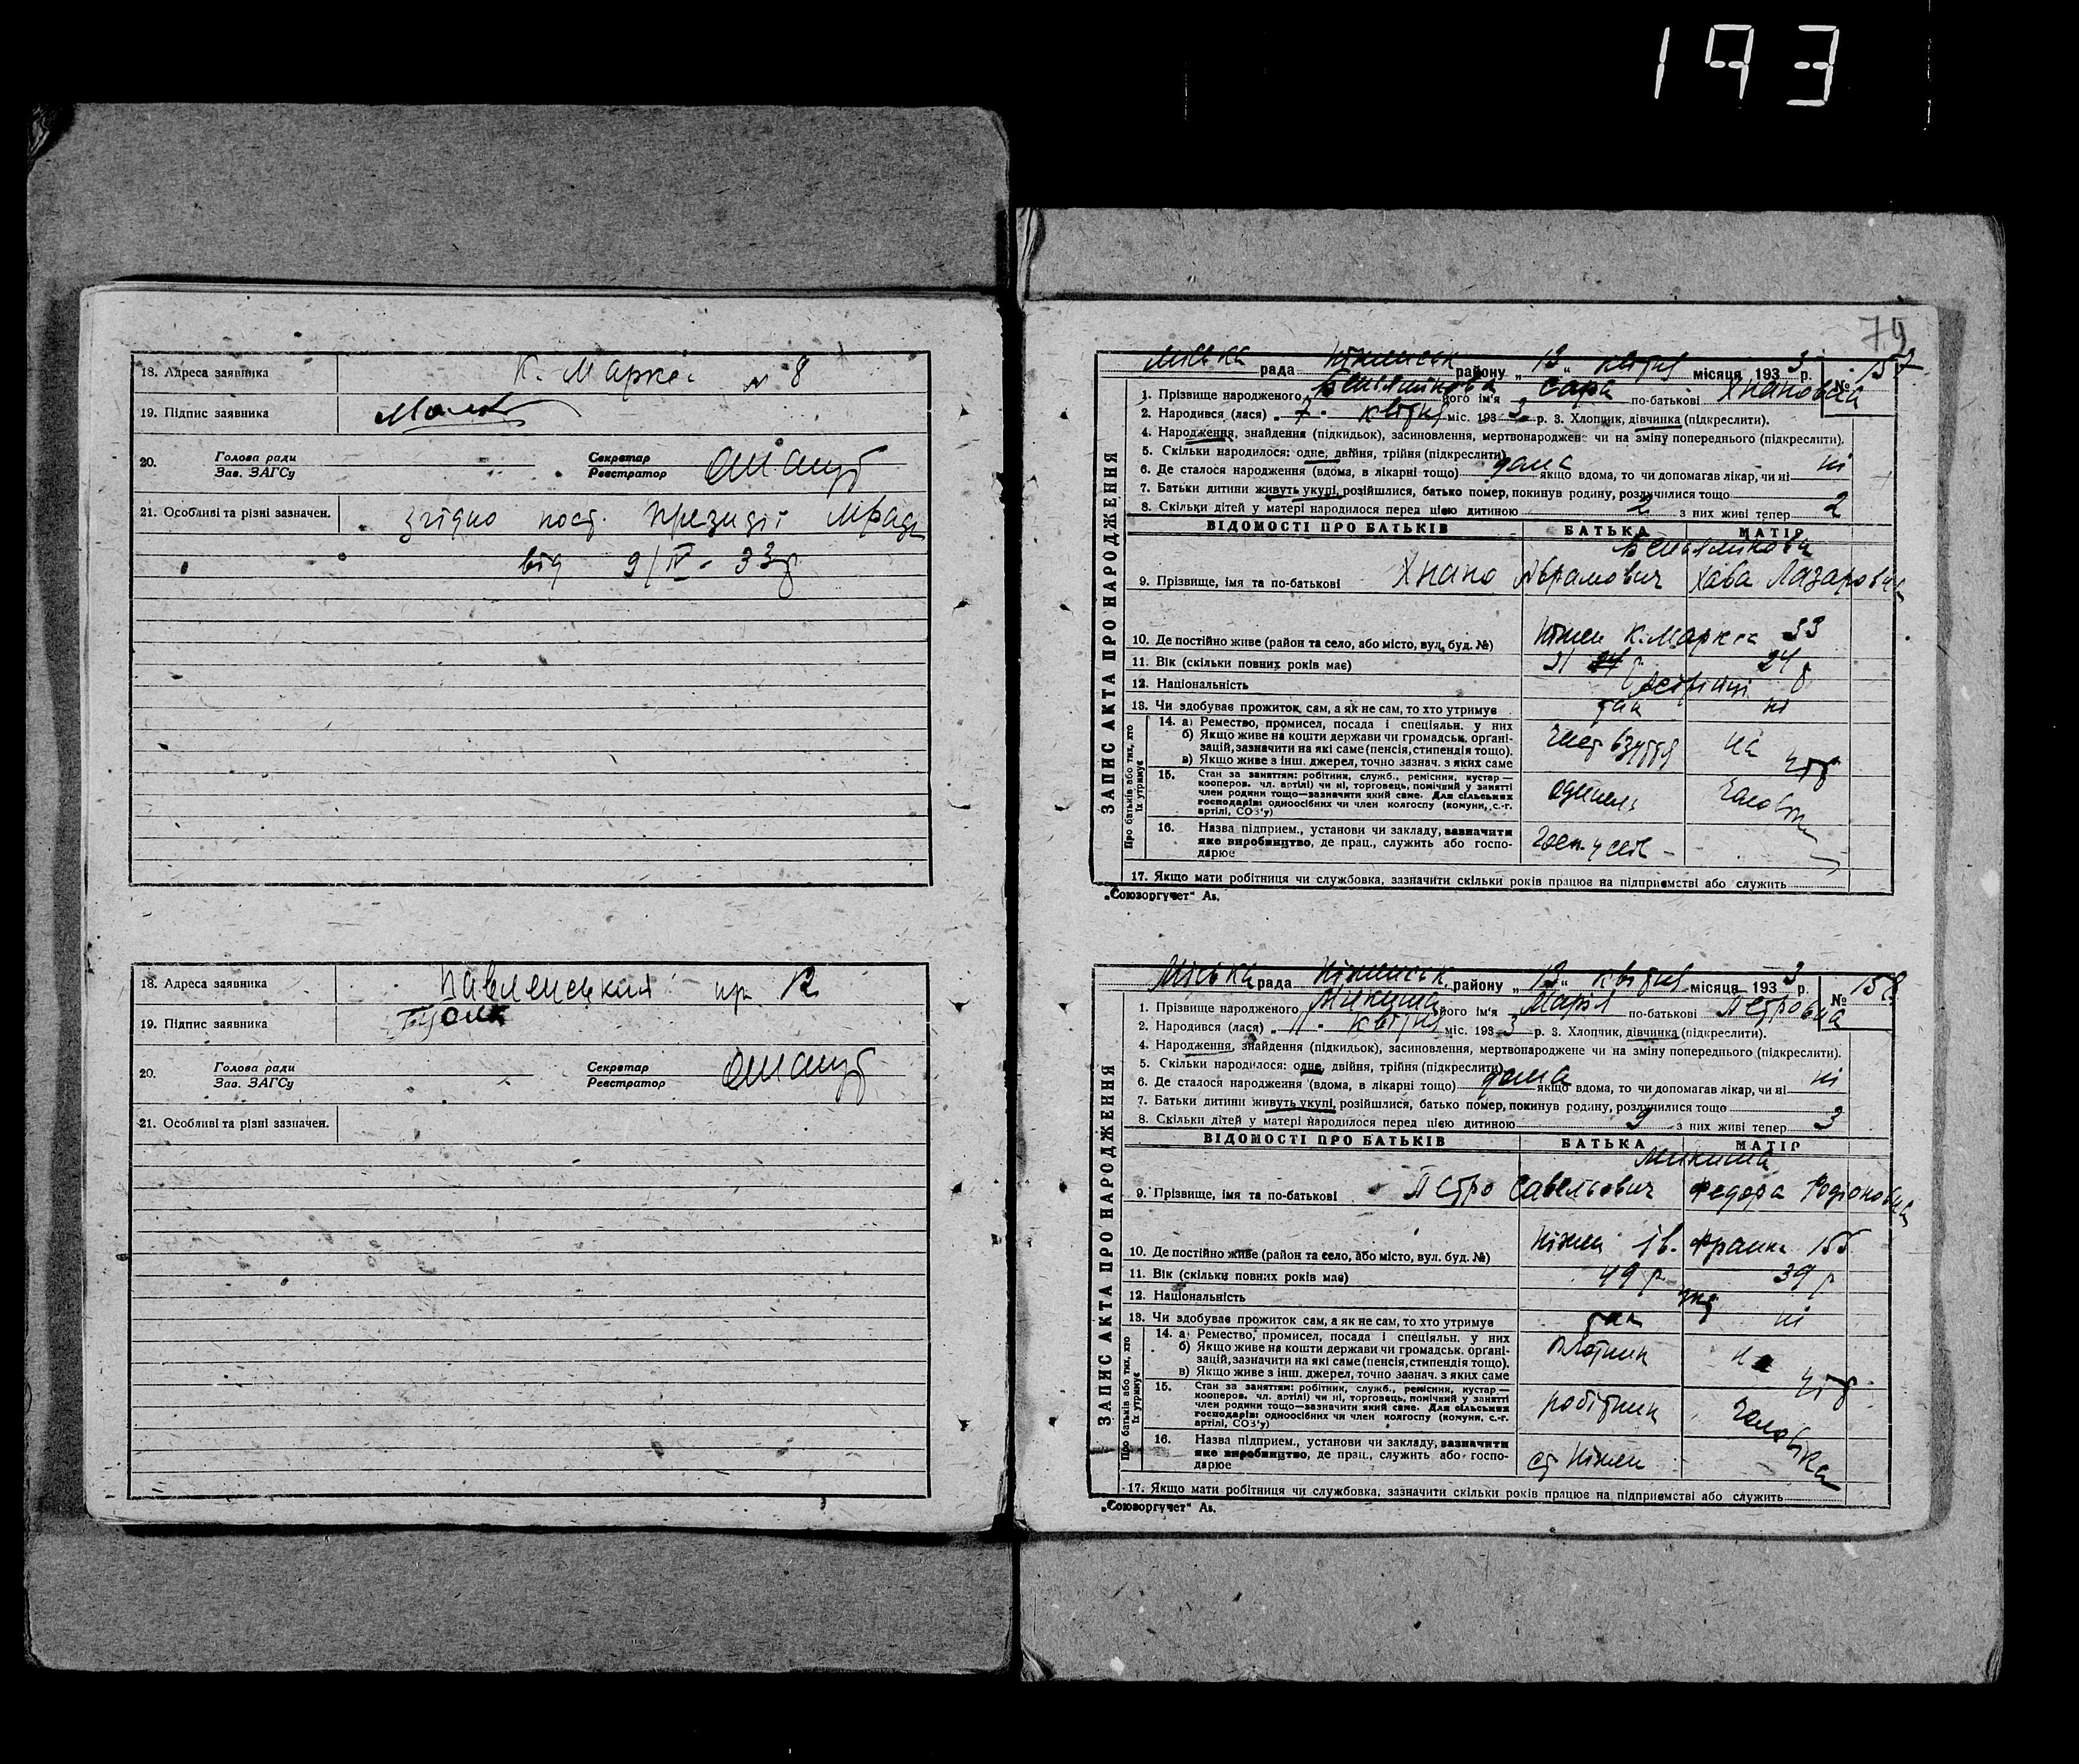 193
18. Адреса заявника К. Маркса № 8
19. Підпис заявника
20. Голова ради Секретар
Зав. ЗАГСу Реєстратор
21. Особливі та різні зазначен. згідно пост. президії мради
від 9/IV - 33 р
18. Адреса заявника 12
19. Підпис заявника
20. Голова ради Секретар
Зав. ЗАГСу Реєстратор
21. Особливі та різні зазначен.
79
Міська рада Ніженськ району „13“ квітня місяця 1933 р. № 157
ЗАПИС АКТА ПРО НАРОДЖЕННЯ
1. Прізвище народженого Беньямінова його ім'я Сара по-батькові Хнановна
2. Народився (лася) „7“ квітня міс. 1933 р. 3. Хлопчик, дівчинка (підкреслити).
4. Народження, знайдення (підкидьок), засиновлення, мертвонароджене чи на зміну попереднього (підкреслити).
5. Скільки народилося: одне, двійня, трійня (підкреслити)
6. Де сталося народження (вдома, в лікарні тощо) дома якщо вдома, то чи допомагав лікар, чи ні ні
7. Батьки дитини живуть укупі, розійшлися, батько помер, покинув родину, розлучилися тощо
8. Скільки дітей у матері народилося перед цією дитиною 2 з них живі тепер 2
ВІДОМОСТІ ПРО БАТЬКІВ БАТЬКА МАТІР
Беньямінова
9. Прізвище, імя та по-батькові Хнано Абрамович Хава Лазаровна
10. Де постійно живе (район та село, або місто, вул. буд. №) Ніжен К. Маркса 33
11. Вік (скільки повних років має) 31 р. 24 р
12. Національність
13. Чи здобуває прожиток сам, а як не сам, то хто утримує так ні
Про батьків або тих, хто їх утримує
14. а) Ремество, промисел, посада і спеціяльн. у них
б) Якщо живе на кошти держави чи громадськ. органі-
зацій, зазначити на які саме (пенсія, стипендія тощо).
в) Якщо живе з інш. джерел, точно зазнач. з яких саме
чист взуття на утр
15. Стан за заняттям: робітник, служб., ремісник, кустар—
кооперов. чл. артілі) чи ні, торговець, помічний у занятті
член родини тощо—зазначити який саме. Для сільських
господарів: одноосібних чи член колгоспу (комуни, с.-г.
артілі, СОЗ'у)
16. Назва підприєм., установи чи закладу, зазначити
яке виробництво, де прац., служить або госпо-
дарює
17. Якщо мати робітниця чи службовка, зазначити скільки років працює на підприємстві або служить
„Союзоргучет“ Ав.
Міська рада Ніженськ району „13“ квітня місяця 1933 р. № 158
ЗАПИС АКТА ПРО НАРОДЖЕННЯ
1. Прізвище народженого Микуша його ім'я Марія по-батькові Петровна
2. Народився (лася) „11“ квітня міс. 1933 р. 3. Хлопчик, дівчинка (підкреслити).
4. Народження, знайдення (підкидьок), засиновлення, мертвонароджене чи на зміну попереднього (підкреслити).
5. Скільки народилося: одне, двійня, трійня (підкреслити)
6. Де сталося народження (вдома, в лікарні тощо) дома якщо вдома, то чи допомагав лікар, чи ні ні
7. Батьки дитини живуть укупі, розійшлися, батько помер, покинув родину, розлучилися тощо
8. Скільки дітей у матері народилося перед цією дитиною 9 з них живі тепер 3
ВІДОМОСТІ ПРО БАТЬКІВ БАТЬКА МАТІР
Микуша
9. Прізвище, імя та по-батькові Петро Савельович Федора Родіоновна
10. Де постійно живе (район та село, або місто, вул. буд. №) Ніжен Ів. Франка 155
11. Вік (скільки повних років має) 49 р. 39 р
12. Національність укр
13. Чи здобуває прожиток сам, а як не сам, то хто утримує так ні
Про батьків або тих, хто їх утримує
14. а) Ремество, промисел, посада і спеціяльн. у них
б) Якщо живе на кошти держави чи громадськ. органі-
зацій, зазначити на які саме (пенсія, стипендія тощо).
в) Якщо живе з інш. джерел, точно зазнач. з яких саме
плотник на утр
15. Стан за заняттям: робітник, служб., ремісник, кустар—
кооперов. чл. артілі) чи ні, торговець, помічний у занятті
член родини тощо—зазначити який саме. Для сільських
господарів: одноосібних чи член колгоспу (комуни, с.-г.
артілі, СОЗ'у)
робітник чоловіка
16. Назва підприєм., установи чи закладу, зазначити
яке виробництво, де прац., служить або госпо-
дарює
ст Ніжен
17. Якщо мати робітниця чи службовка, зазначити скільки років працює на підприємстві або служить
„Союзоргучет“ Ав.